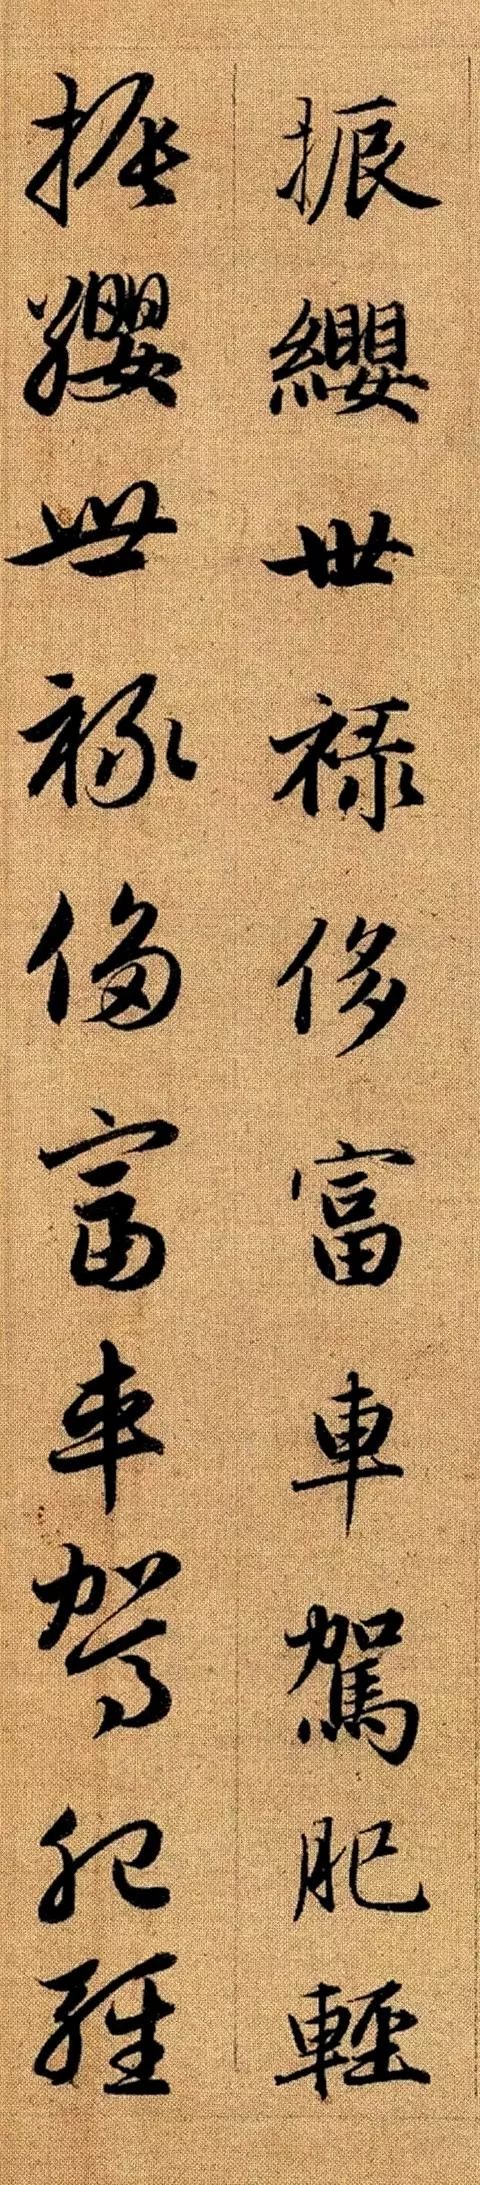 振纓世祿侈富車駕肥輕
振纓世祿侈富車駕肥輕